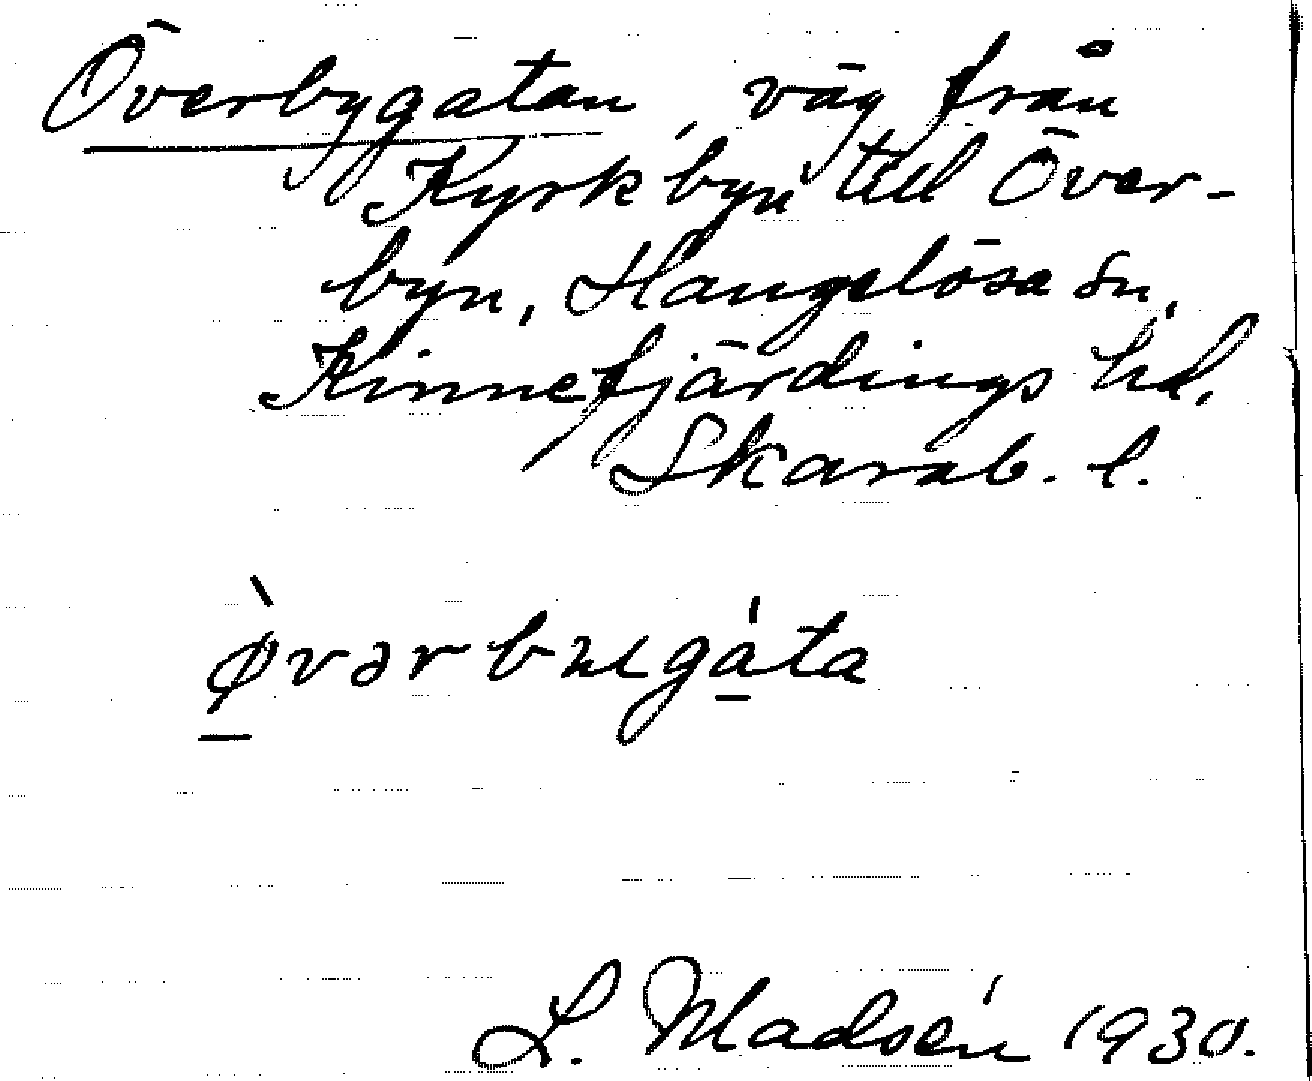 Överbygatan, väg från
Kyrkbyn till Över-
byn, Hangelösa sn,
Kinnefjärdings hd,
Skarab. l.
L. Madsén 1930.